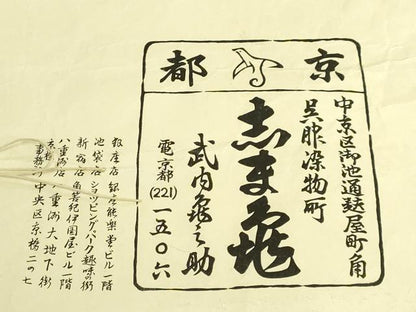 京都
中京区御池通麸屋町角
呉服染物司
志ま亀
武内亀之助
電京都(221)一五〇六
銀座店 銀座能楽堂ビル一階
池袋店 ショッピングパーク趣味の街
新宿店 角筈紀伊國屋ビル一階
八重洲店 八重洲大地下街
中央区京橋二の七